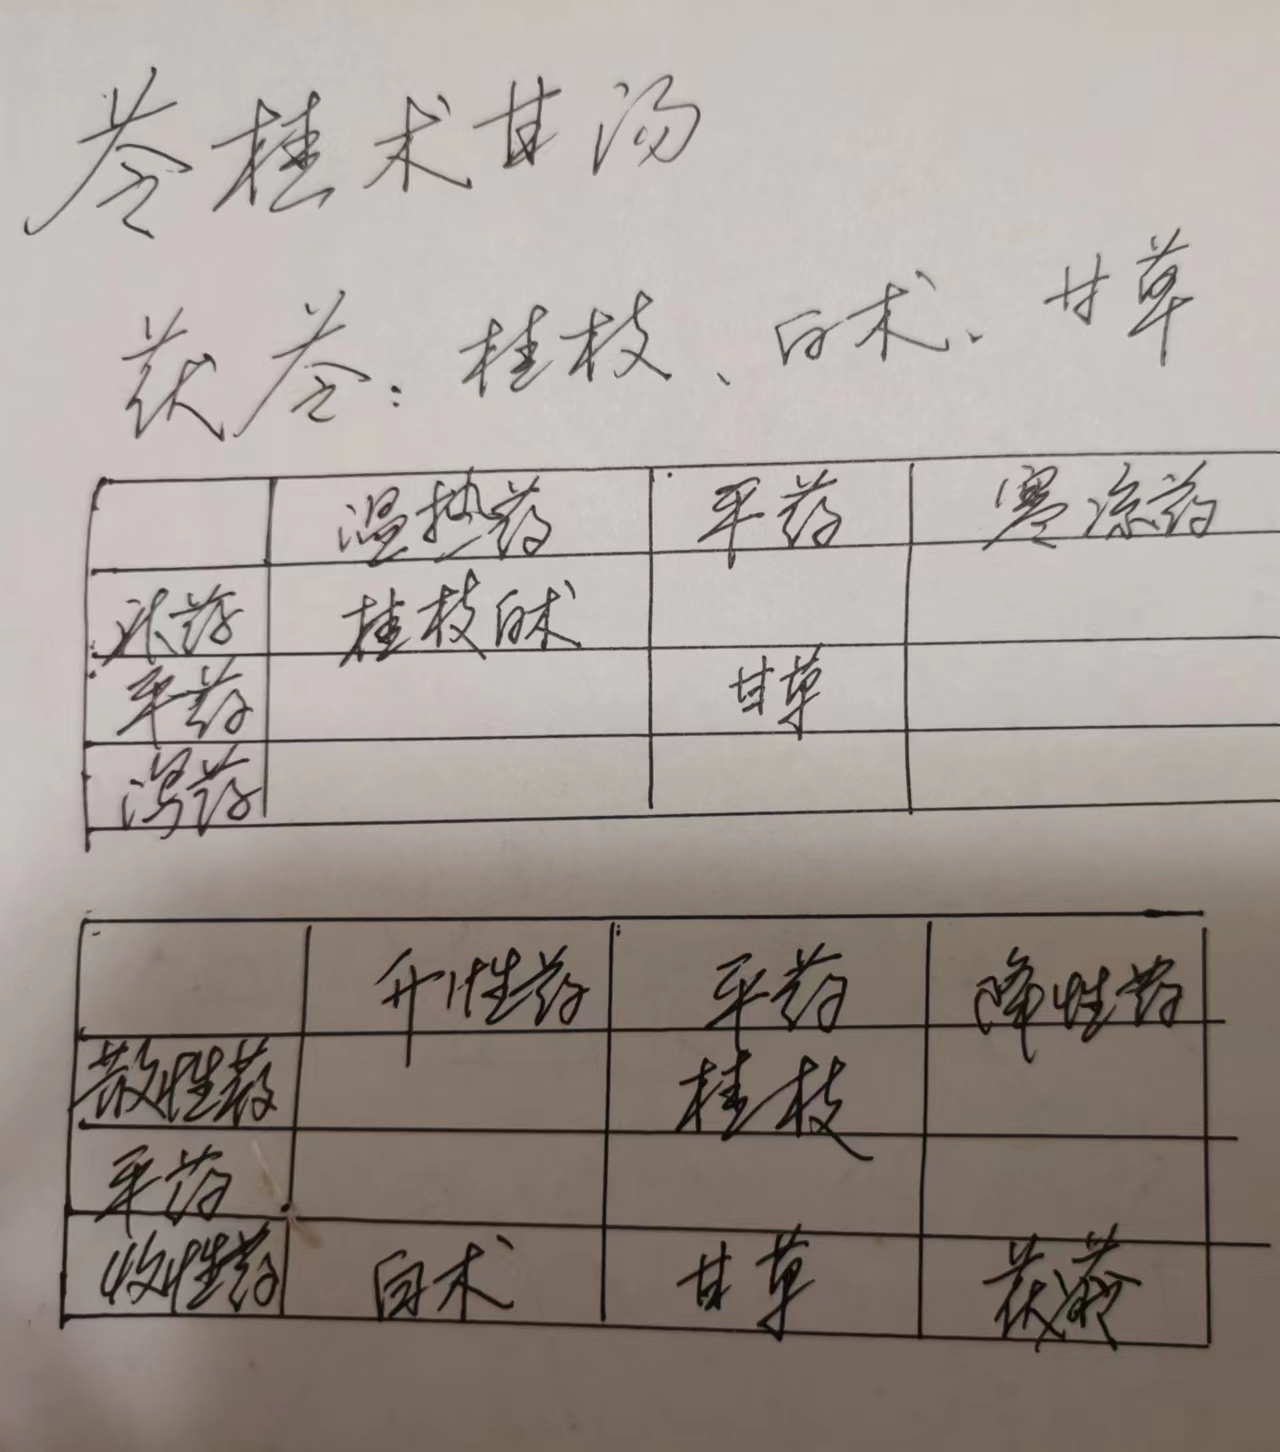 苓桂术甘汤
茯苓:桂枝、白术、甘草
温热药 平药 寒凉药
补药 桂枝白术
平药 甘草
泻药
升性药 平药 降性药
散性药 桂枝
平药
收性药 白术 甘草 茯苓